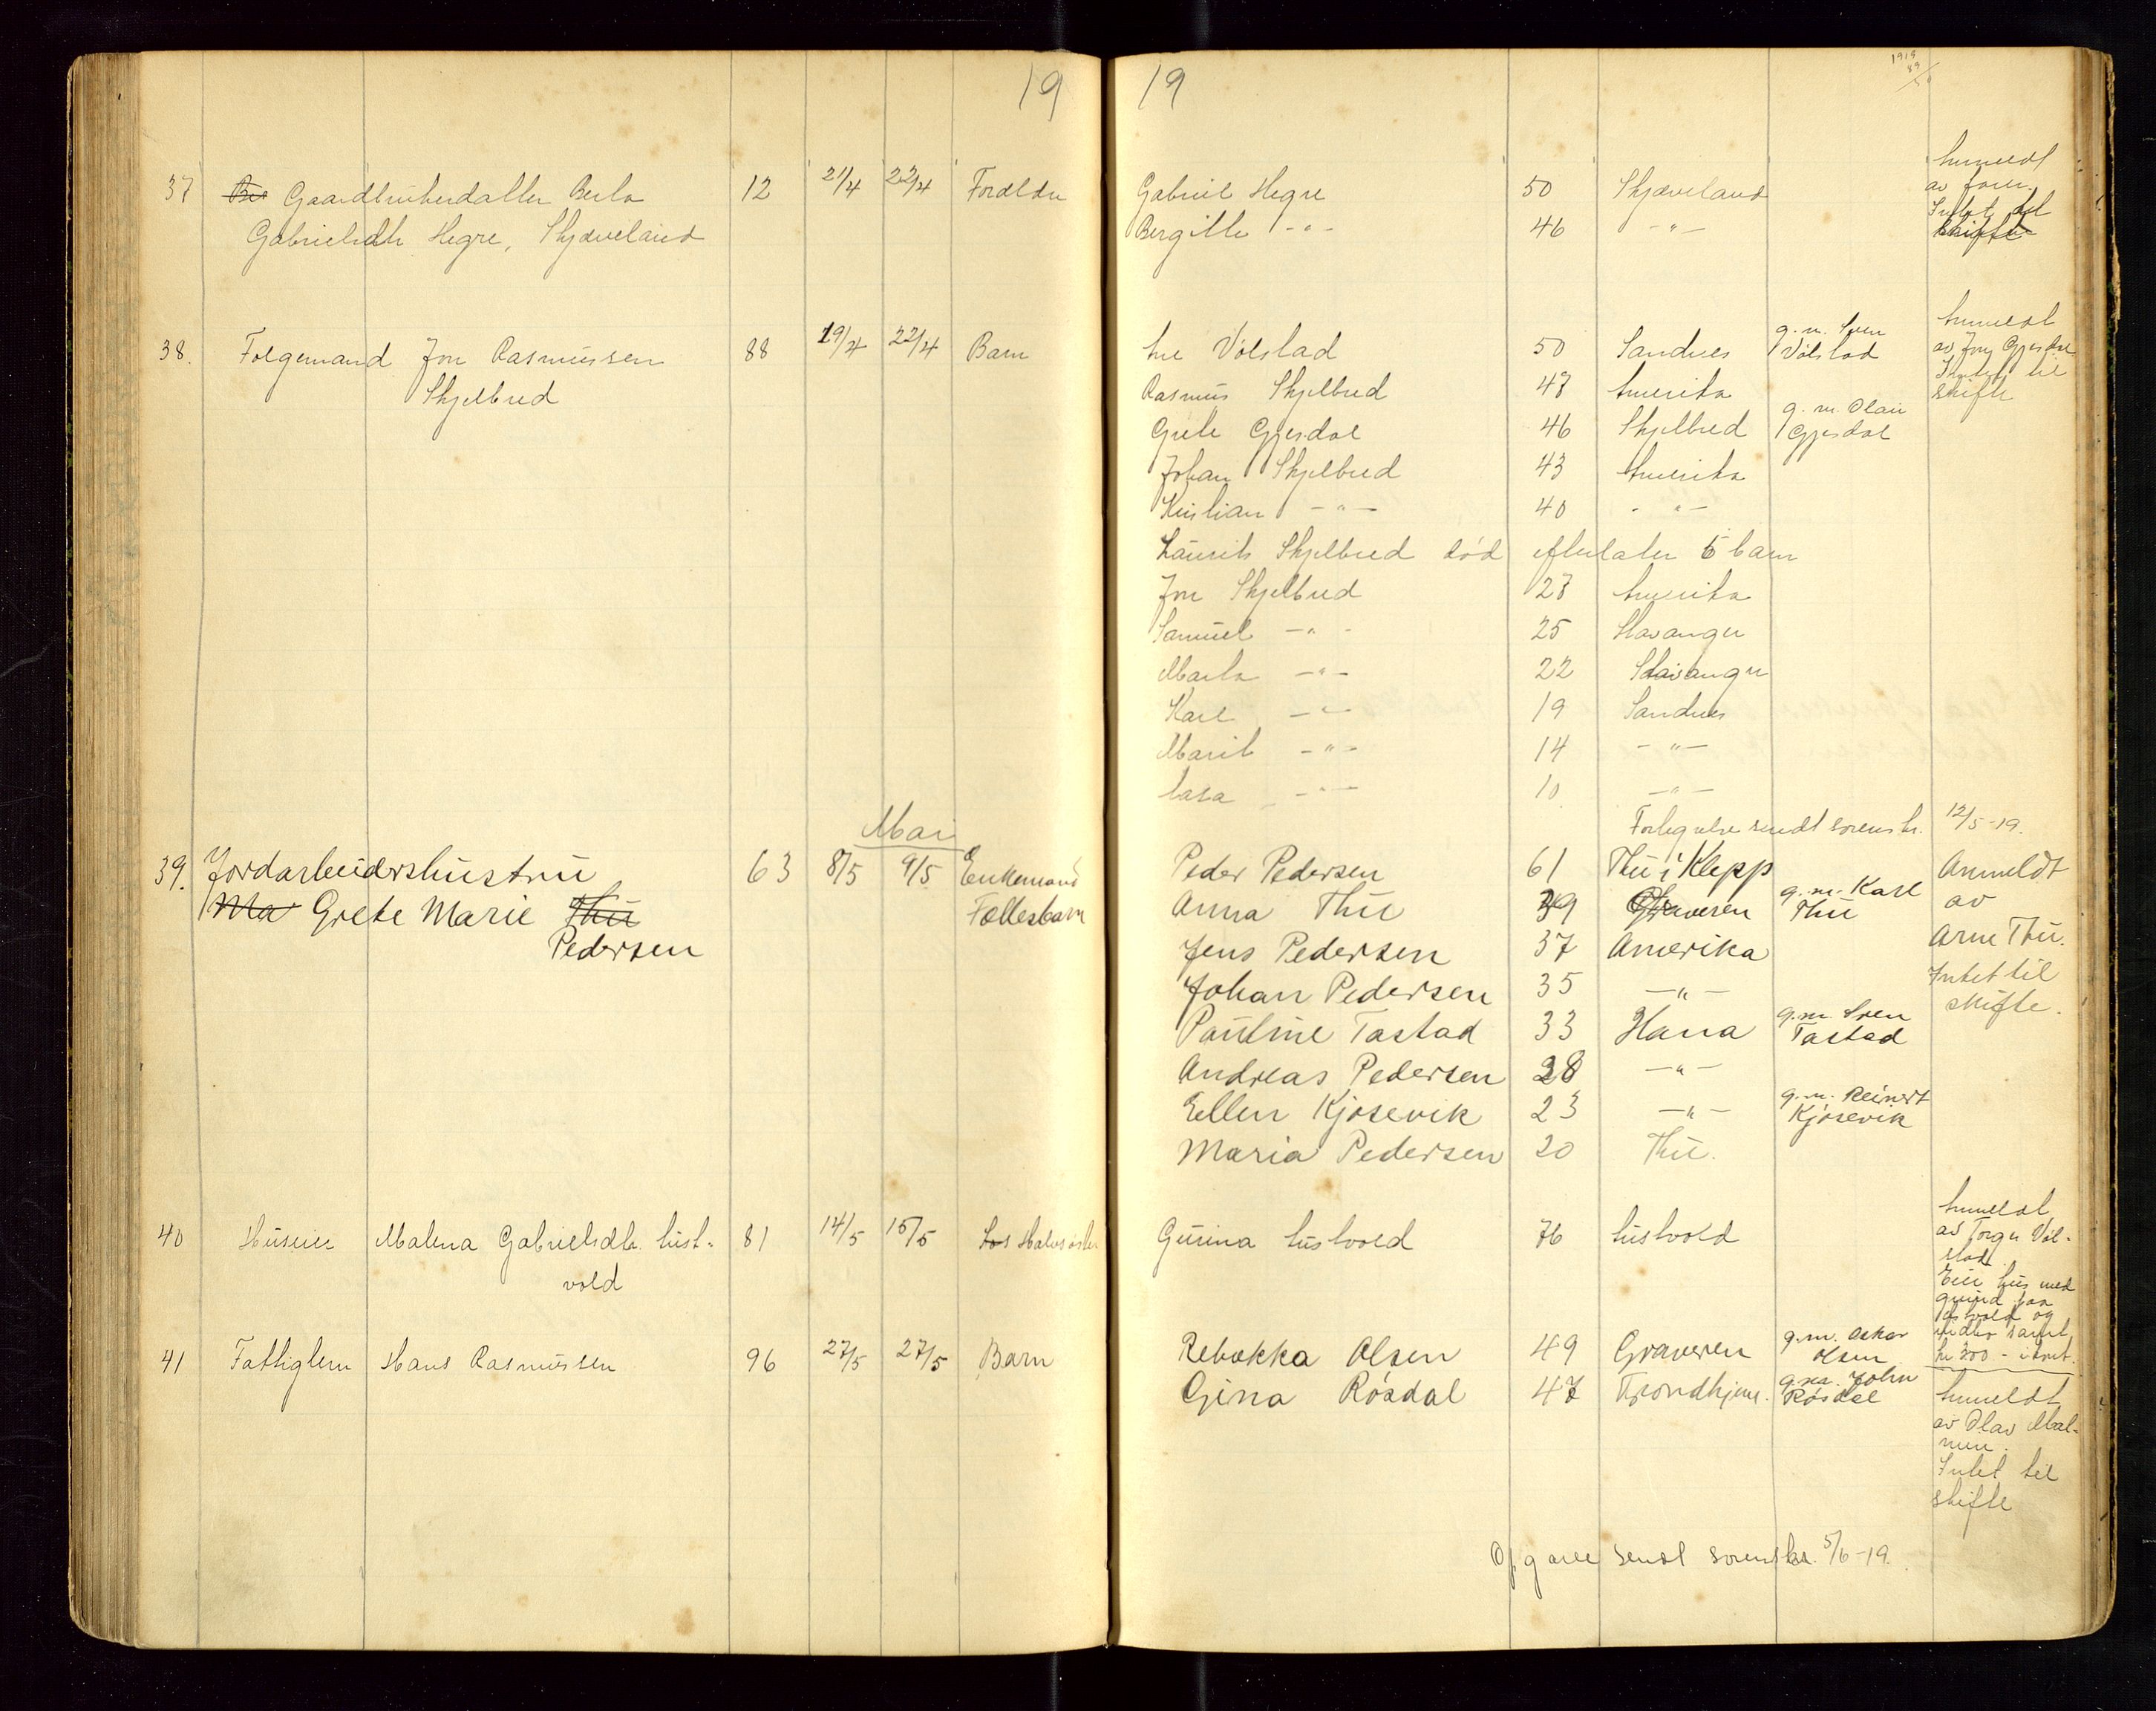 19
37 Gaardbrukerdatter Berta 12 21/4 22/4 Foreldre
Gabrielsdtr Hegre, Skjæveland
38. Folgemand Jon Rasmussen 88 19/4 22/4 Barn
Skjelbred
Mai
39. Jordarbeidershustru 63 8/5 9/5 Enkemand
Ma Grete Marie Thu Fællesbarn
Pedersen
40 Huseier Malena Gabrielsdtr. Aust- 81 14/5 15/5 Halvsøster
vold
41 Fattiglem Hans Rasmussen 96 27/5 27/5 Barn
19
1919
Gabriel Hegre 50 Skjæveland Anmeldt
av faren.
Bergitte -"- 46 -"- Intet til
skifte
Ane Völstad 50 Sandnes g. m. Sven Völstad Anmeldt
av Jon Gjesdal
Rasmus Skjelbred 47 Amerika Intet til
skifte
Grete Gjesdal 46 Skjelbred g. m. Olau Gjesdal
Johan Skjelbred 43 Amerika
Kristian -"- 40 -"-
Laurits Skjelbred död efterlater 6 barn
Jon Skjelbred 27 Amerika
Samuel -"- 25 Stavanger
Marta -"- 22 Stavanger
Karl -"- 19 Sandnes
Marit -"- 14 -"-
Lara -"- 10 -"-
Fortegnelse sendt sorenskr. 12/5-19.
Peder Pedersen 61 Thu i Klepp Anmeldt
Anna Thu 39 Graveren g. m. Karl Thu av
Jens Pedersen 37 Amerika Arne Thu.
Johan Pedersen 35 -"- Intet til
skifte.
Pauline Tastad 33 Hana g. m. Sven Tastad
Andreas Pedersen 28 -"-
Ellen Kjosevik 23 -"- g. m. Reinert Kjosevik
Maria Pedersen 20 Thu.
Gurina Austvold 76 Austvold Anmeldt
av Torger Völ-
stad
Eier hus med
grund paa
Austvold og
midler samt
kr 300 -
Rebekka Olsen 49 Graveren g. m. Oskar Olsen
Gina Rösdal 47 Trondhjem. g. m. John Rösdal Anmeldt
av Olav Mal-
min.
Intet til
skifte
Opgave sendt sorenskr. 5/6-19.